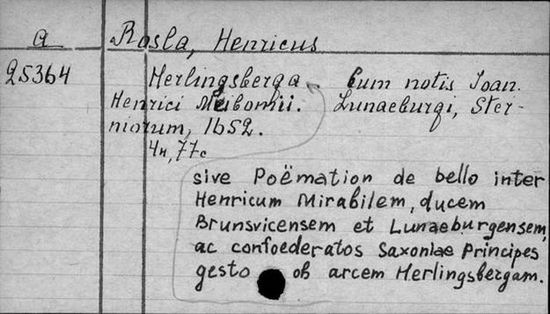 a Rosla, Henricus
25364 Herlingsberga Cum notis Joan.
Henrici Meibomii. Lunaeburgi, Ster-
niorum, 1652.
4n, 77c
sive Poëmation de bello inter
Henricum Mirabilem, ducem
Brunsvicensem et Lunaeburgensem,
ac confoederatos Saxoniae Principes
gesto ob arcem Herlingsbergam.